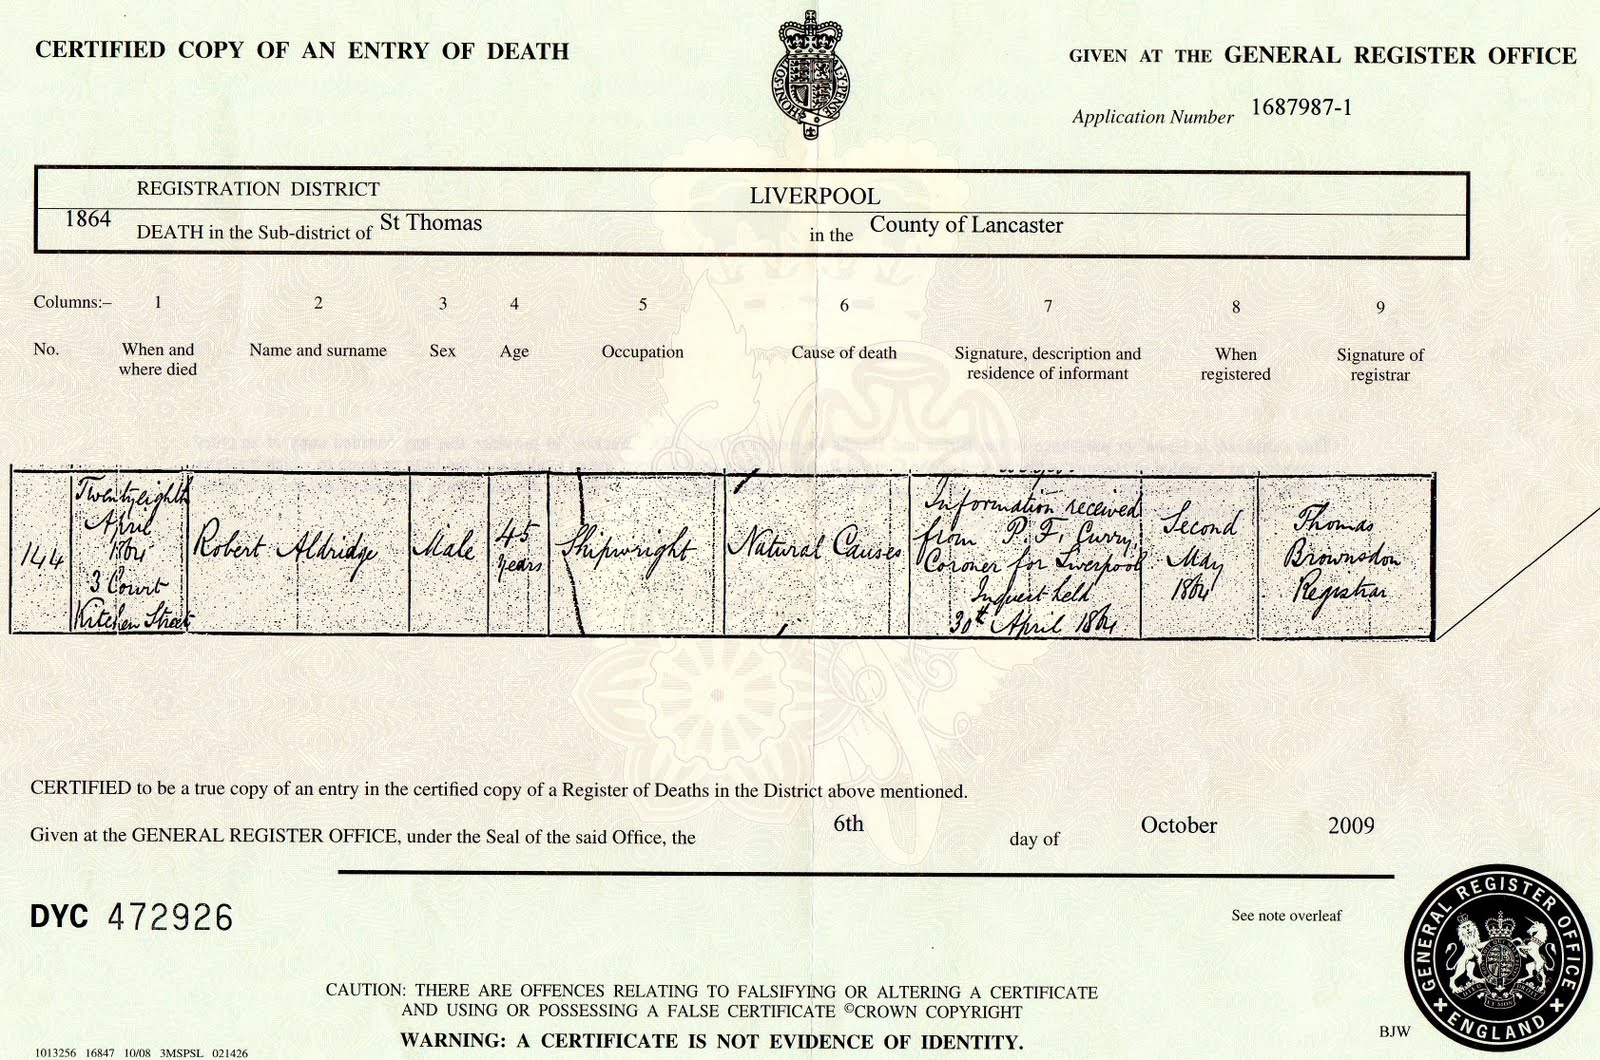 CERTIFIED COPY OF AN ENTRY OF DEATH
GIVEN AT THE GENERAL REGISTER OFFICE
HONI·SOIT MAL·Y·PENSE
Application Number 1687987-1
REGISTRATION DISTRICT LIVERPOOL
1864 DEATH in the Sub-district of St Thomas in the County of Lancaster
Columns:– 1 2 3 4 5 6 7 8 9
No.
When and
where died
Name and surname
Sex
Age
Occupation
Cause of death
Signature, description and
residence of informant
When
registered
Signature of
registrar
144
Twentyeighth
April
1864
3 Court
Kitchen Street
Robert Aldridge
Male
45
years
Shipwright
Natural Causes
Information received
from P. F. Curry,
Coroner for Liverpool
Inquest held
30th April 1864
Second
May
1864
Thomas
Brownsdon
Registrar
CERTIFIED to be a true copy of an entry in the certified copy of a Register of Deaths in the District above mentioned.
Given at the GENERAL REGISTER OFFICE, under the Seal of the said Office, the 6th day of October 2009
DYC 472926
See note overleaf
GENERAL REGISTER OFFICE
ENGLAND
CAUTION: THERE ARE OFFENCES RELATING TO FALSIFYING OR ALTERING A CERTIFICATE
AND USING OR POSSESSING A FALSE CERTIFICATE ©CROWN COPYRIGHT
WARNING: A CERTIFICATE IS NOT EVIDENCE OF IDENTITY.
BJW
1013256 16847 10/08 3MSPSL 021426